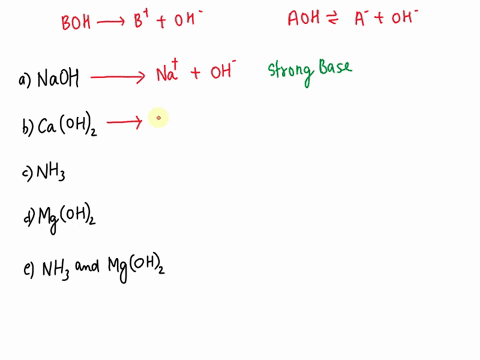 BOH ⟶ B⁺ + OH⁻ AOH ⇌ A⁻ + OH⁻
a) NaOH ⟶ Na⁺ + OH⁻ Strong Base
b) Ca(OH)₂ ⟶
c) NH₃
d) Mg(OH)₂
e) NH₃ and Mg(OH)₂